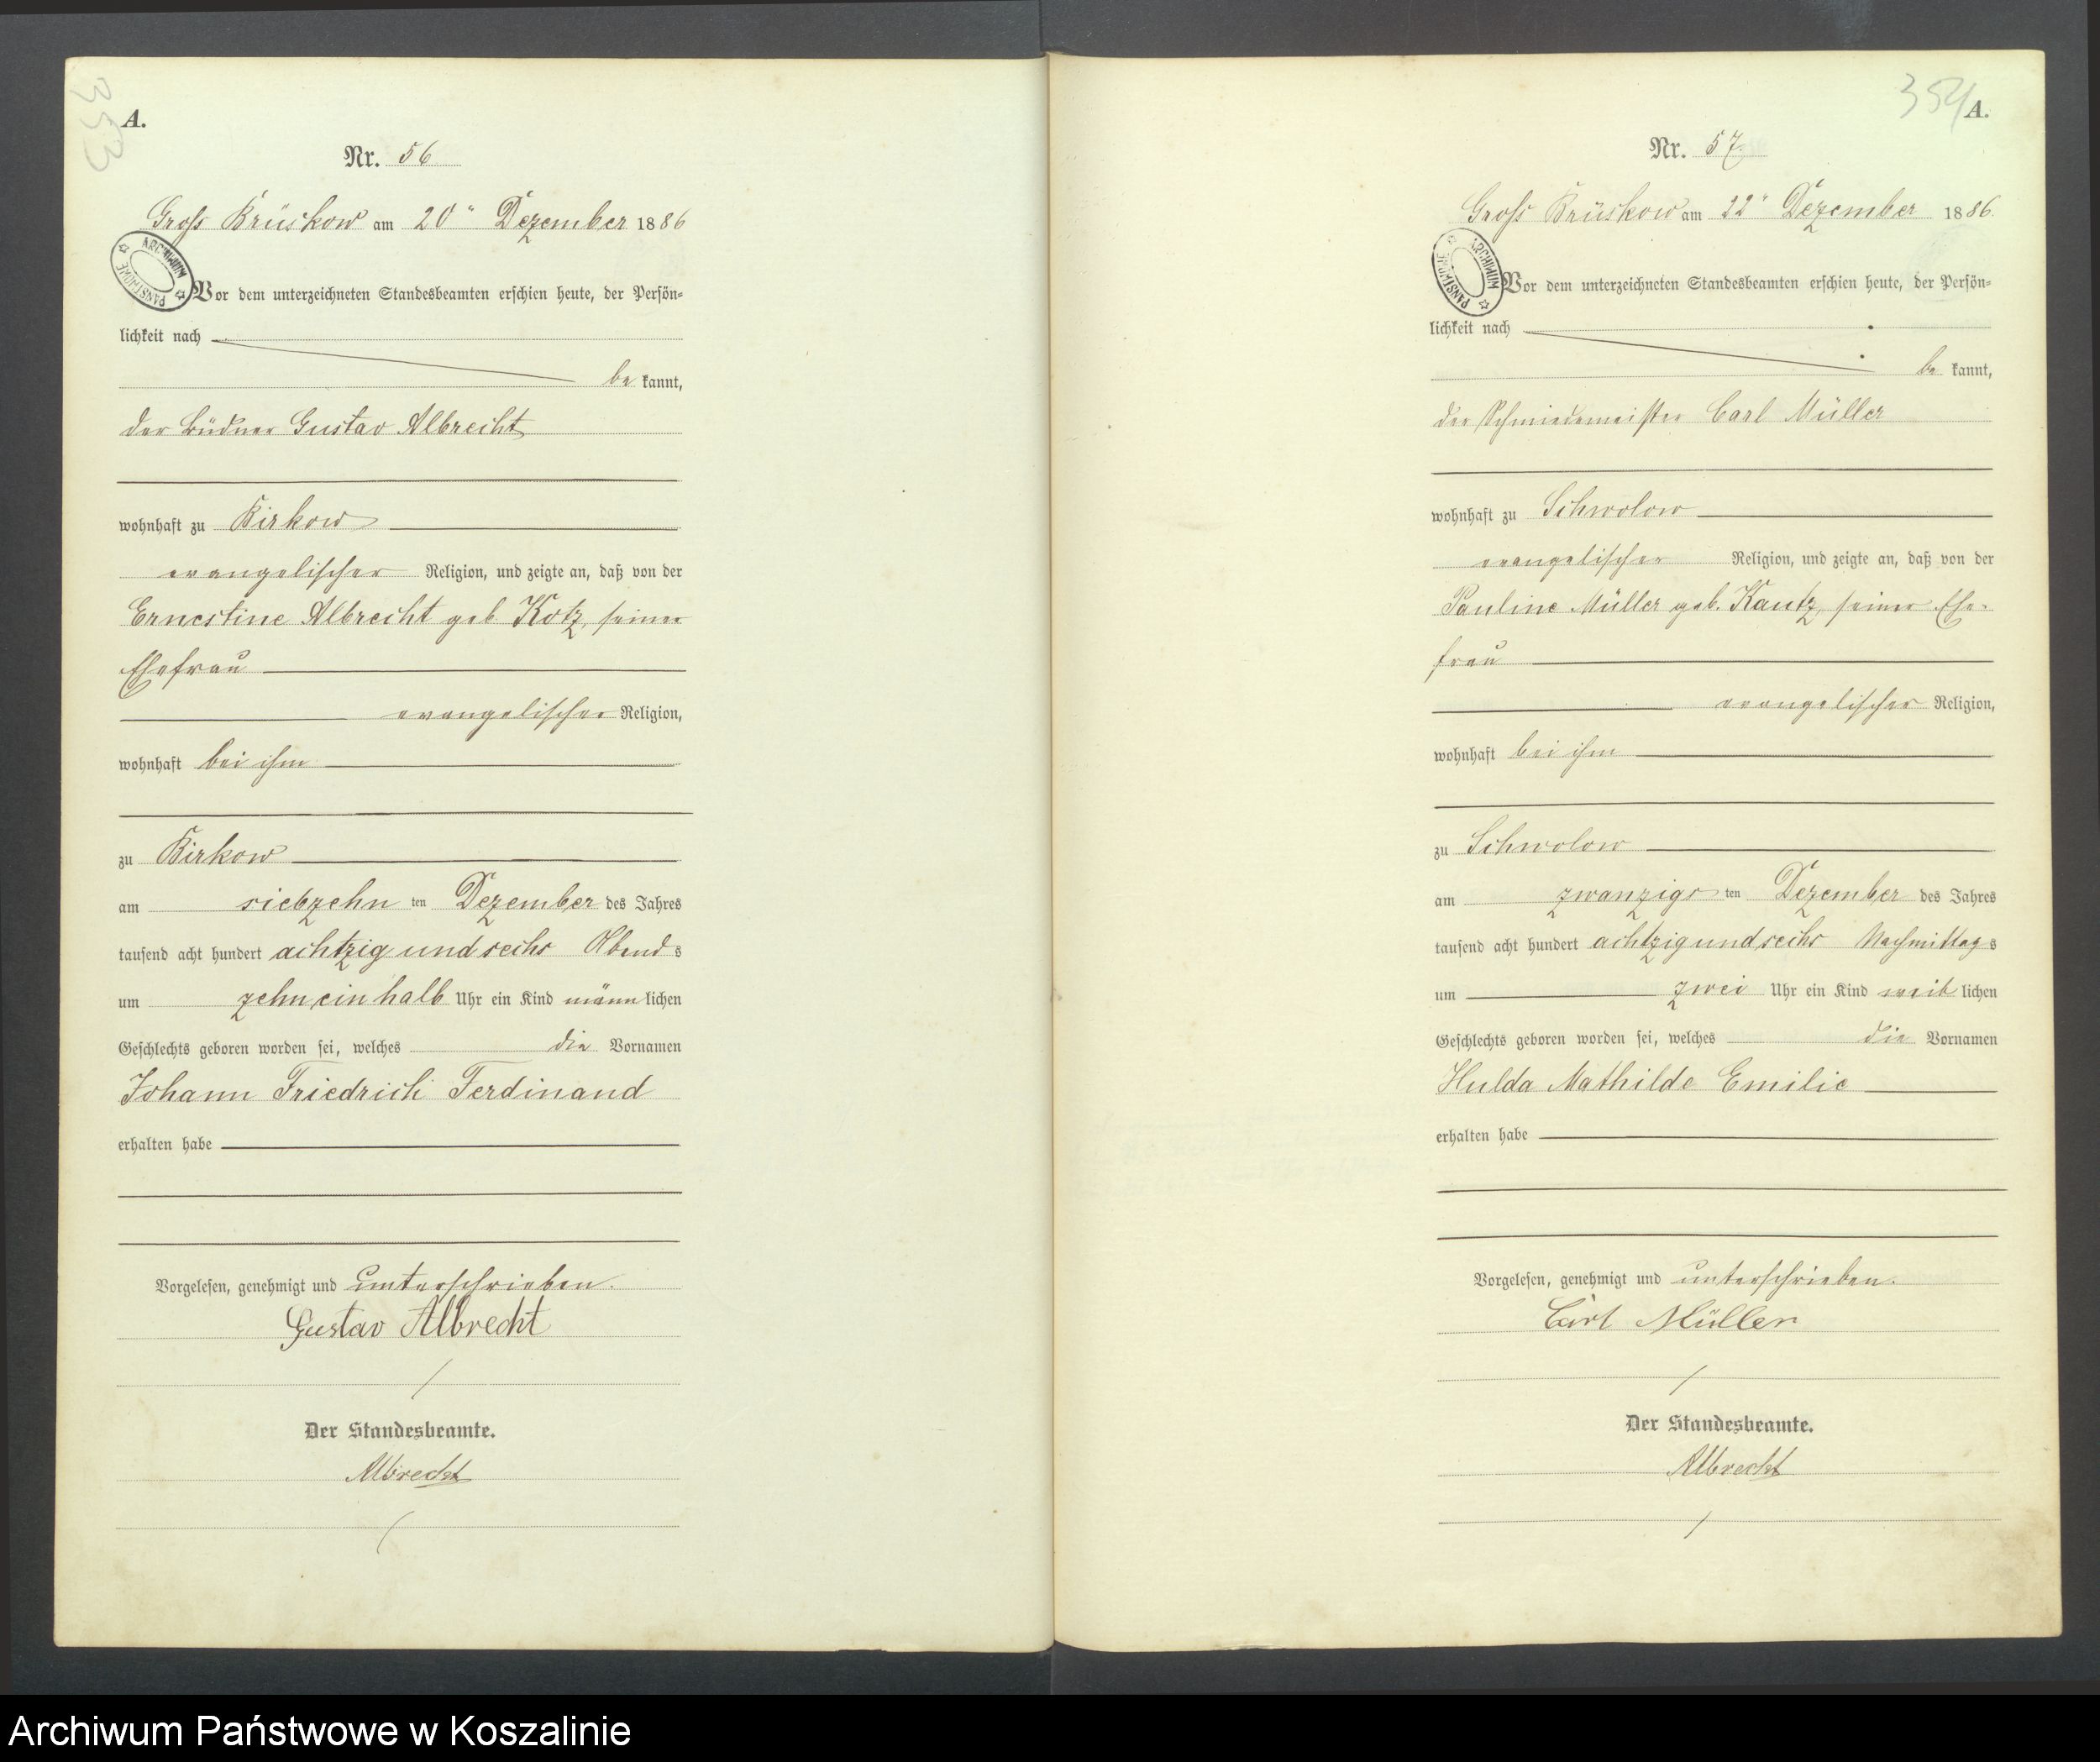 353
A.
Nr. 56
Gross Brüskow am 20" Dezember 1886
ARCHIWUM PAŃSTWOWE
Vor dem unterzeichneten Standesbeamten erschien heute, der Persön=
lichkeit nach
be kannt,
der Büdner Gustav Albrecht
wohnhaft zu Birkow
evangelischer Religion, und zeigte an, daß von der
Ernestine Albrecht geb. Kotz, seiner
Ehefrau
evangelischer Religion,
wohnhaft bei ihm
zu Birkow
am siebzehn ten Dezember des Jahres
tausend acht hundert achtzig und sechs Abend s
um zehn ein halb Uhr ein Kind männ lichen
Geschlechts geboren worden sei, welches die Vornamen
Johann Friedrich Ferdinand
erhalten habe
Vorgelesen, genehmigt und unterschrieben.
Gustav Albrecht
Der Standesbeamte.
Albrecht
354
A.
Nr. 57.
Gross Brüskow am 22" Dezember 1886.
ARCHIWUM PAŃSTWOWE
Vor dem unterzeichneten Standesbeamten erschien heute, der Persön=
lichkeit nach
be kannt,
der Schmiedemeister Carl Müller
wohnhaft zu Schwolow
evangelischer Religion, und zeigte an, daß von der
Pauline Müller geb. Kautz, seiner Ehe-
frau
evangelischer Religion,
wohnhaft bei ihm
zu Schwolow
am zwanzigs ten Dezember des Jahres
tausend acht hundert achtzig und sechs Nachmittag s
um zwei Uhr ein Kind weib lichen
Geschlechts geboren worden sei, welches die Vornamen
Hulda Mathilde Emilie
erhalten habe
Vorgelesen, genehmigt und unterschrieben.
Carl Müller
Der Standesbeamte.
Albrecht
Archiwum Państwowe w Koszalinie